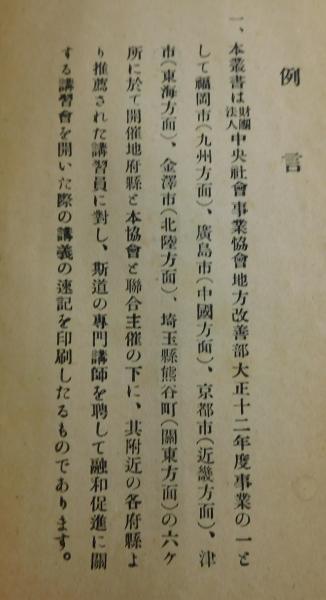 例言
一、本叢書は財團法人中央社會事業協會地方改善部大正十二年度事業の一と
して福岡市(九州方面)、廣島市(中國方面)、京都市(近畿方面)、津
市(東海方面)、金澤市(北陸方面)、埼玉縣熊谷町(關東方面)の六ヶ
所に於て開催地府縣と本協會と聯合主催の下に、其附近の各府縣よ
り推薦された講習員に對し、斯道の專門講師を聘して融和促進に關
する講習會を開いた際の講義の速記を印刷したるものであります。